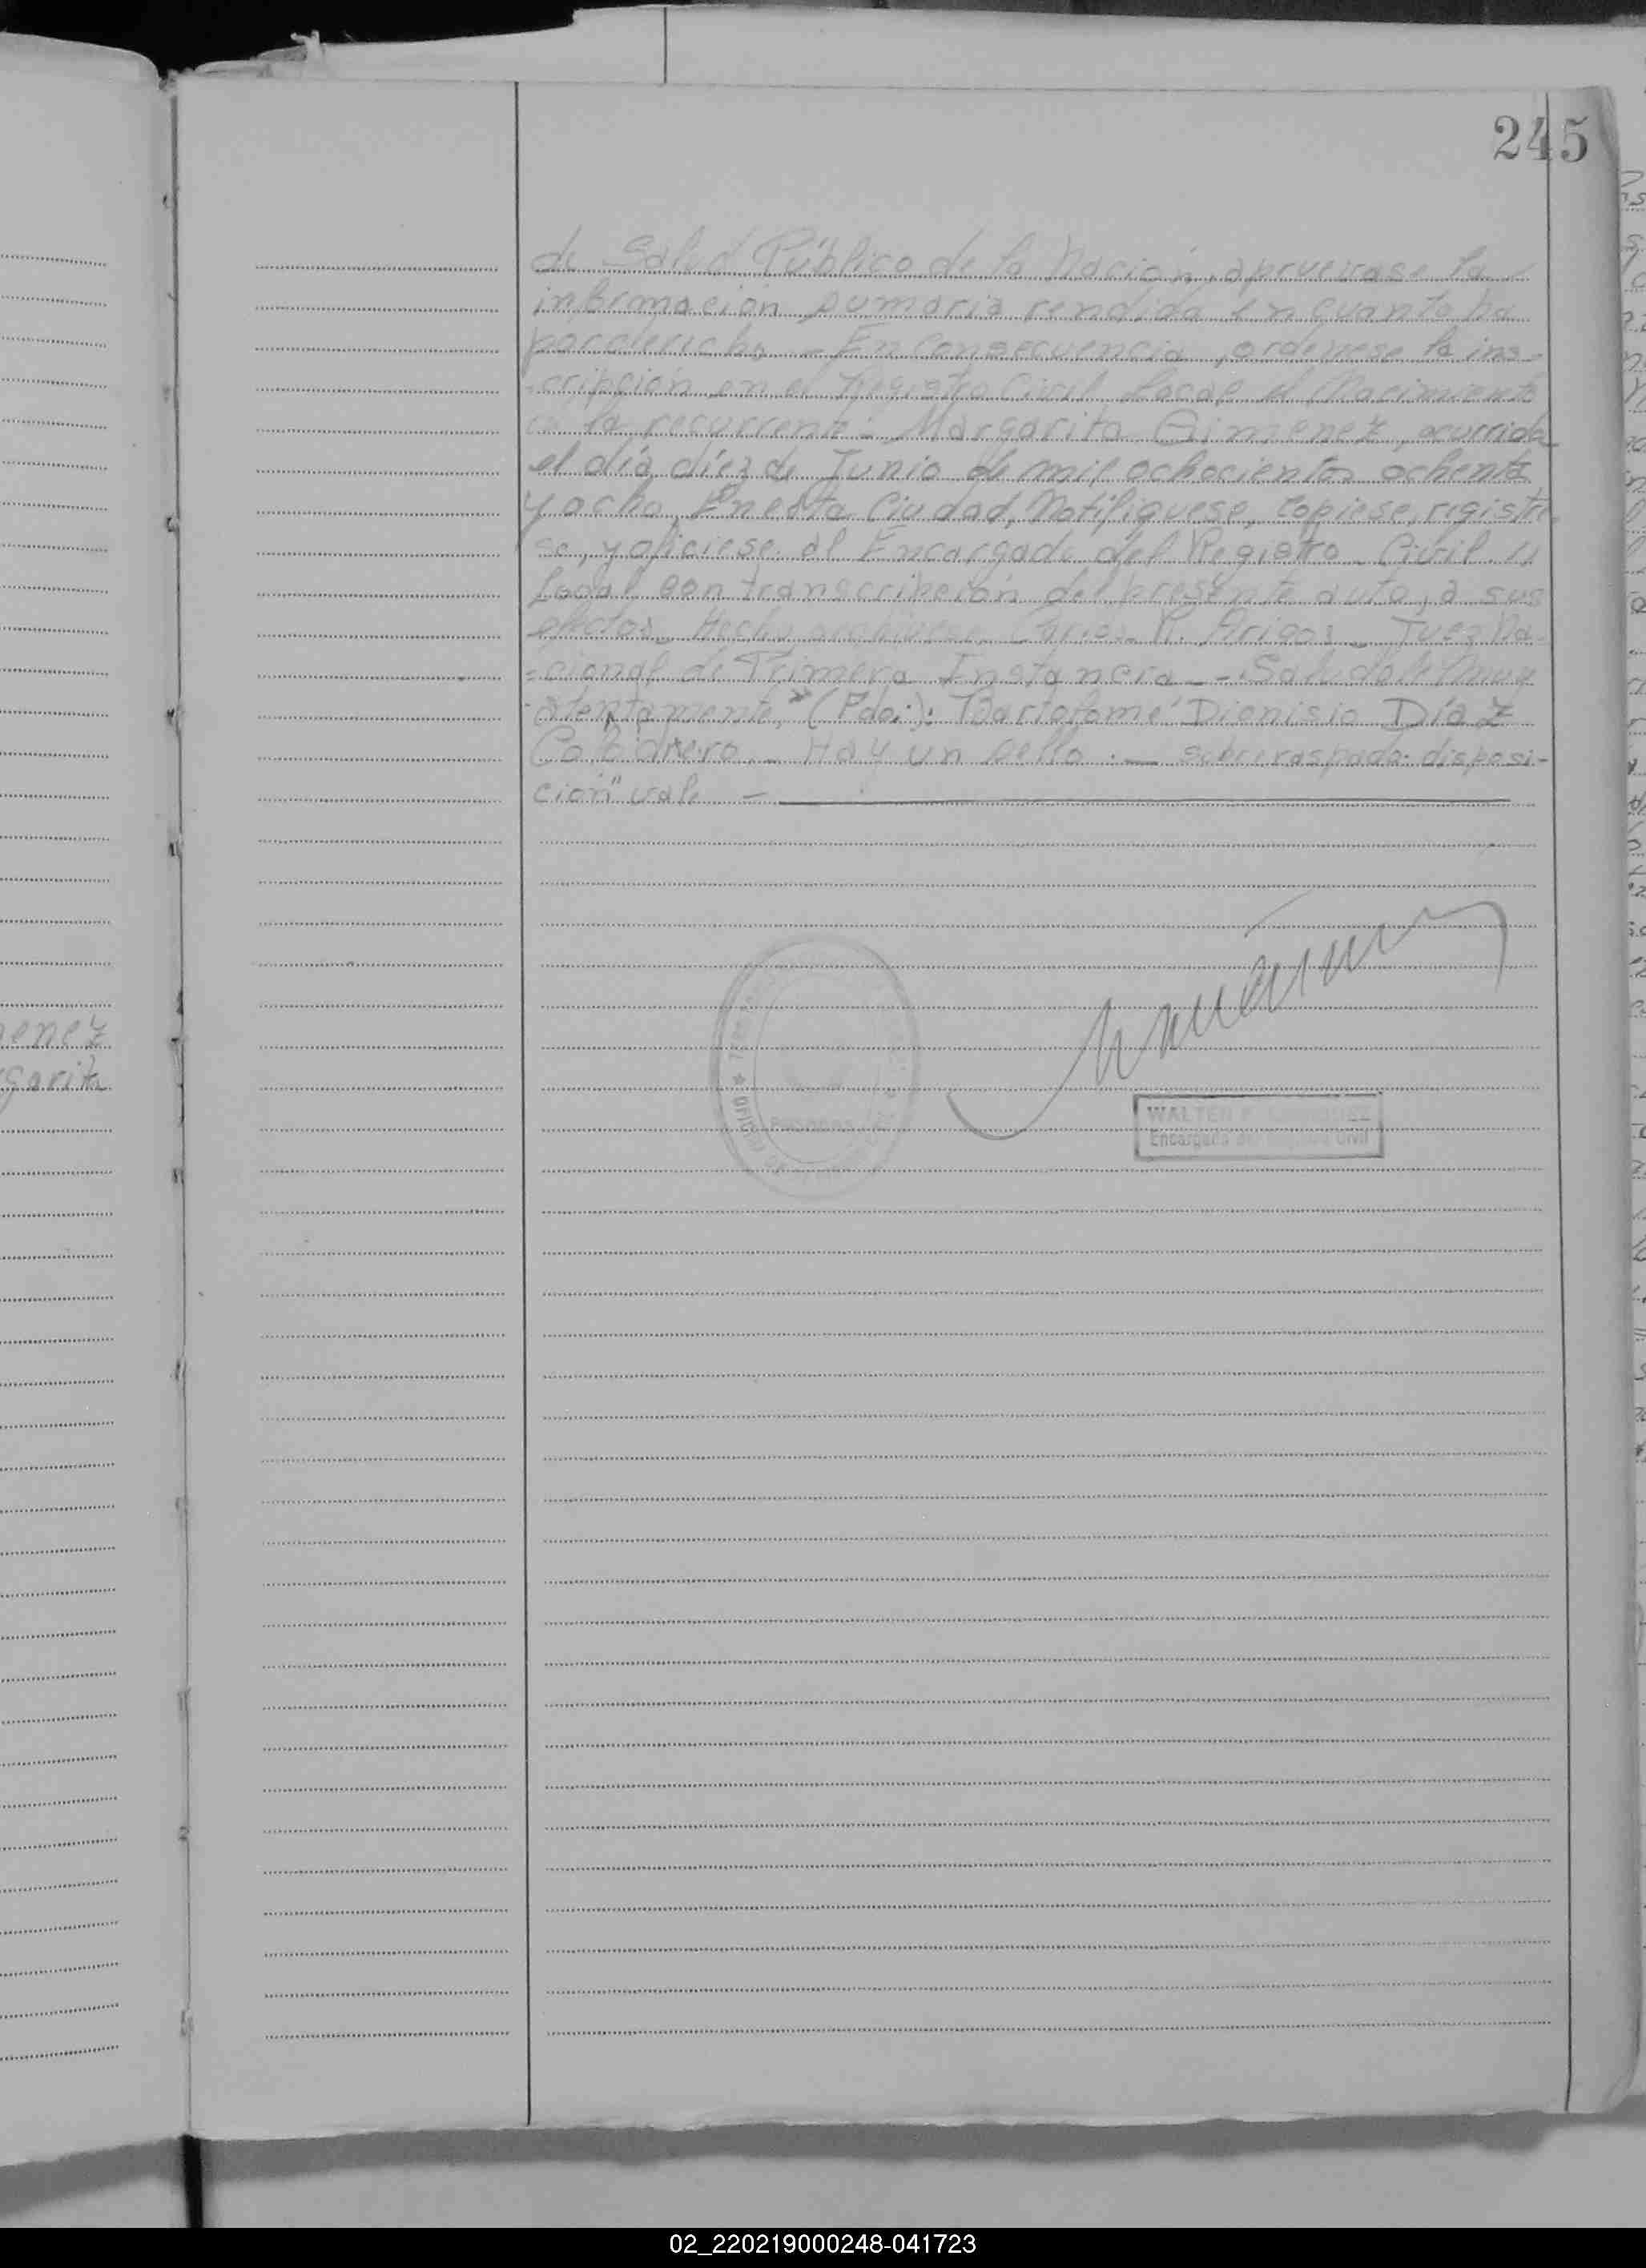 245
de Salud Público de la Nación, aprueвase la
información sumaria rendida en cuanto ha
por derecho. - En Consecuencia, ordenese la ins-
cripción en el Registro Civil Local el Nacimiento
de la recurrente: Margarita Gimenez, ocurrida
el día díez de Junio de mil ochocientos ochenta
y ocho, En esta Ciudad, Notifiquese, copiese, registre
se, y oficiese al Encargado del Registro Civil
Local con transcripción del presente auto, a sus
efectos. Hecho Carlos R. Arigós - Juez Na-
=cional de Primera Instancia - - Saludole muy
atentamente," (Fdo:): Bartolomé Dionisio Díaz
Colodrero. - Hay un sello. - sobreraspado: disposi-
ción" vale -
enez
garita
POSADAS
WALTER
Encargado del Registro Civil
02_220219000248-041723